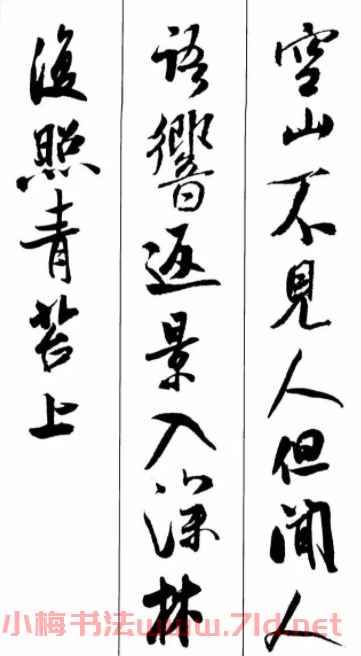 空山不見人但聞人
語響返景入深林
復照青苔上
小梅书法www.7ld.net